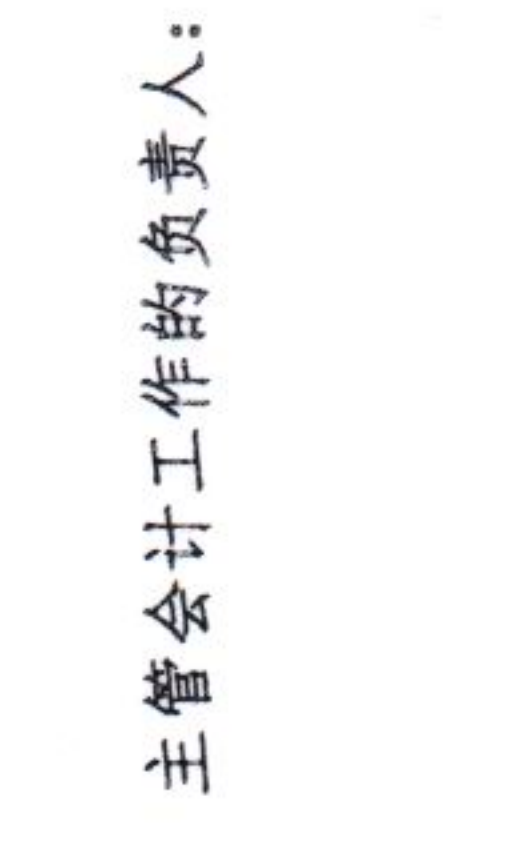 主管会计工作的负责人：